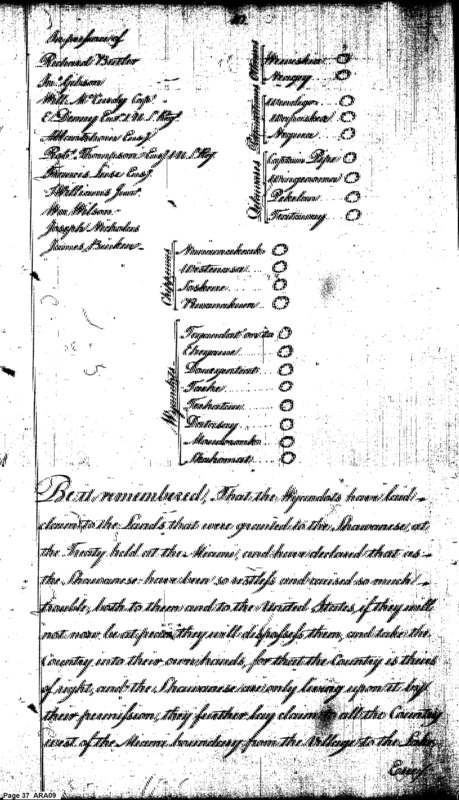 In presence of
Richard Butler
Jno. Gibson
Will. McCurdy Capt.
E. Denny Ens. 1 U.S. Regt.
A Hartshorn Ensg.
Robt. Thompson Ensg 1 U.S. Reg
Francis Luse Ensg.
J Williams Junr.
Wm. Wilson
Joseph Nicholas
James Rinken
Weneskia
Nangey
Mandigon
Wapaskea
Nequea
Captain Pipe
Wingenomia
Pekelan
Teataway
Delawares
Chippewas
Nanamakeak
Wetenasa
Soskene
Pewanakum
Wyandots
Teyandat on ta
Cheyawe
Doueyenteat
Tarhe
Terhataw
Datasay
Maudoronk
Skahomat
Be it remembered, That the Wyandots have laid
claim to the Lands that were granted to the Shawanese, at
the Treaty held at the Miami, and have declared that as
the Shawanese have been so restless and caused so much
trouble, both to them and to the United States, if they will
not now be at peace, they will dispossess them, and take the
Country into their own hands, for that the Country is theirs
of right, and the Shawanese are only living upon it by
their permission, they further lay claim to all the Country
west of the Miami boundary from the Village to the Lake
Page 37 ARA09